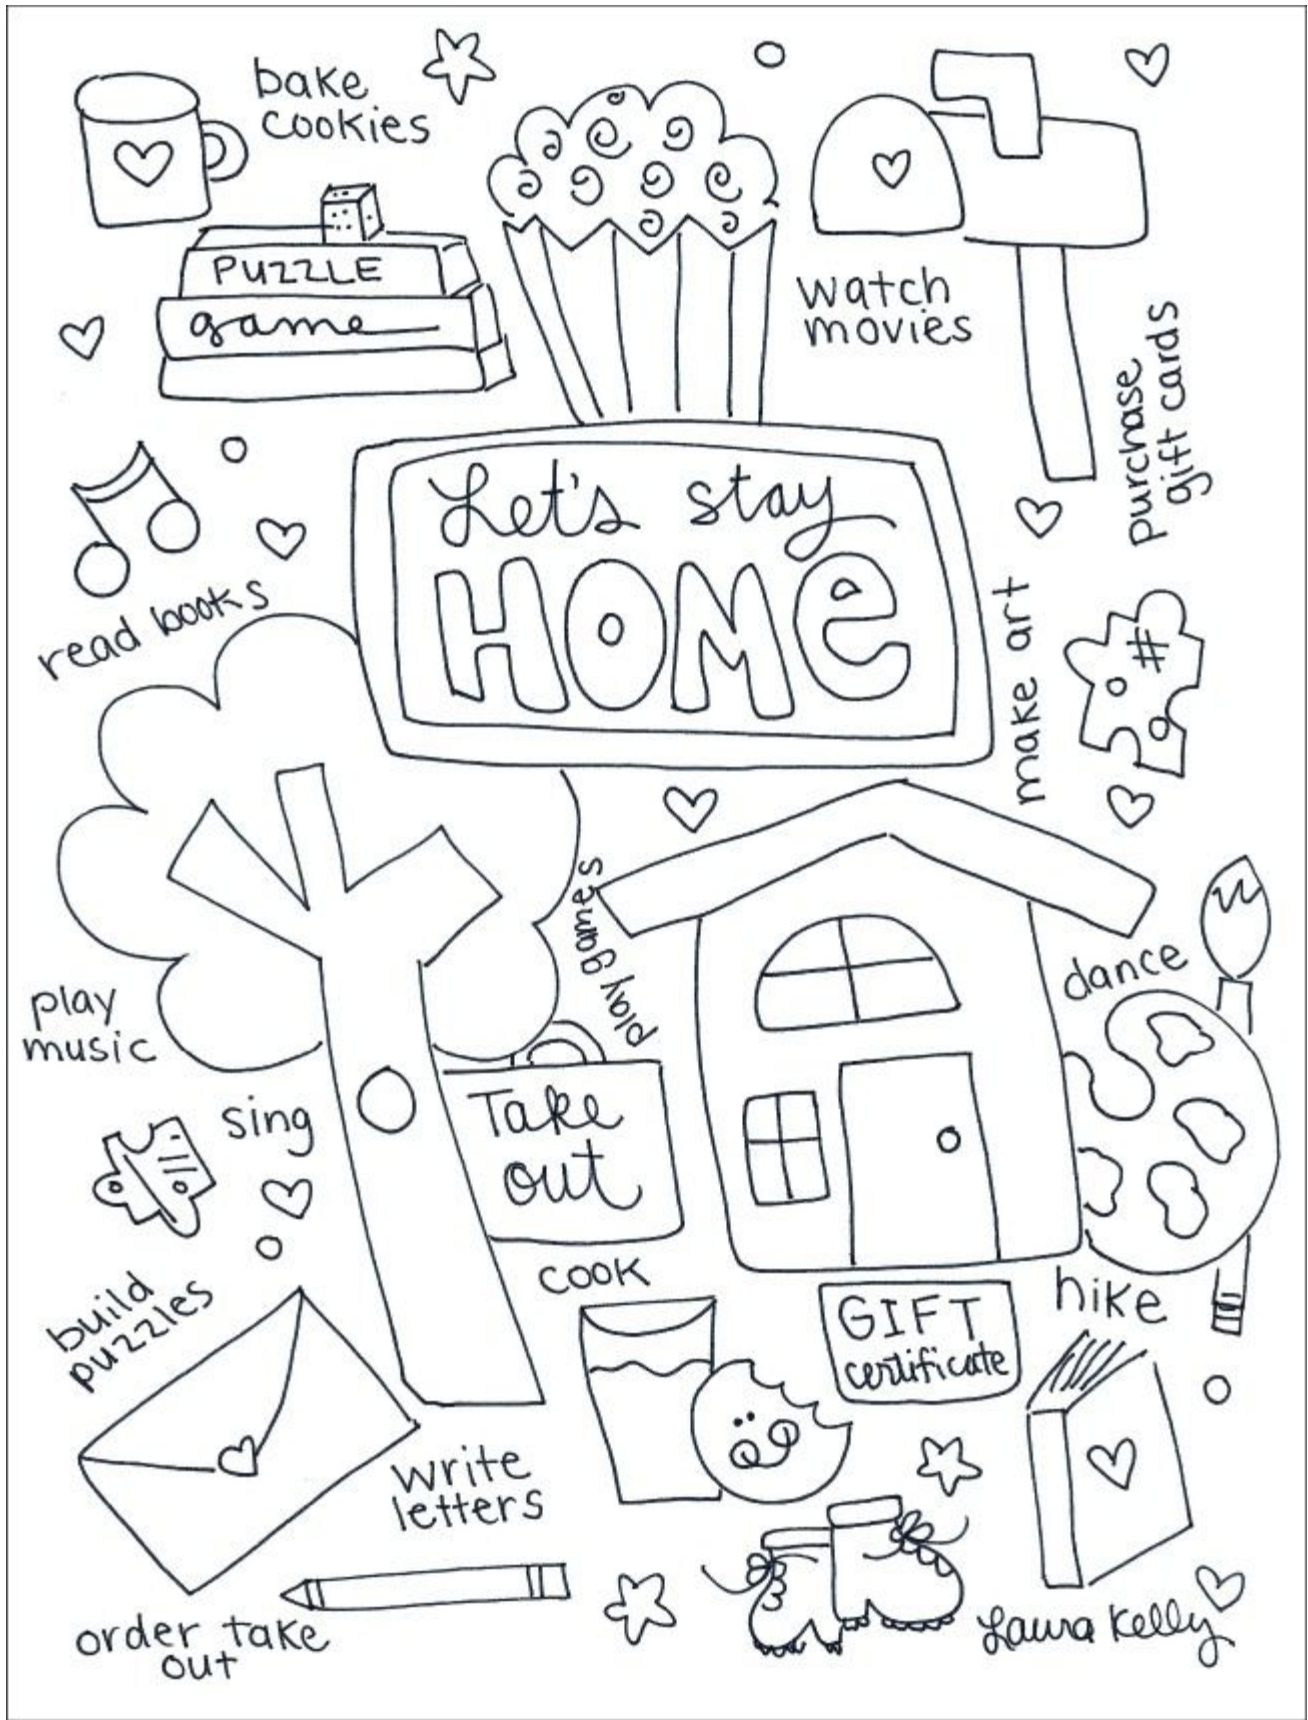 bake
cookies
PUZZLE
game
watch
movies
purchase
gift cards
Let's stay
HOMe
read books
make art
#
play games
dance
play
music
sing
Take
out
cook
build
puzzles
GIFT
certificate
hike
write
letters
order take
out
Laura Kelly